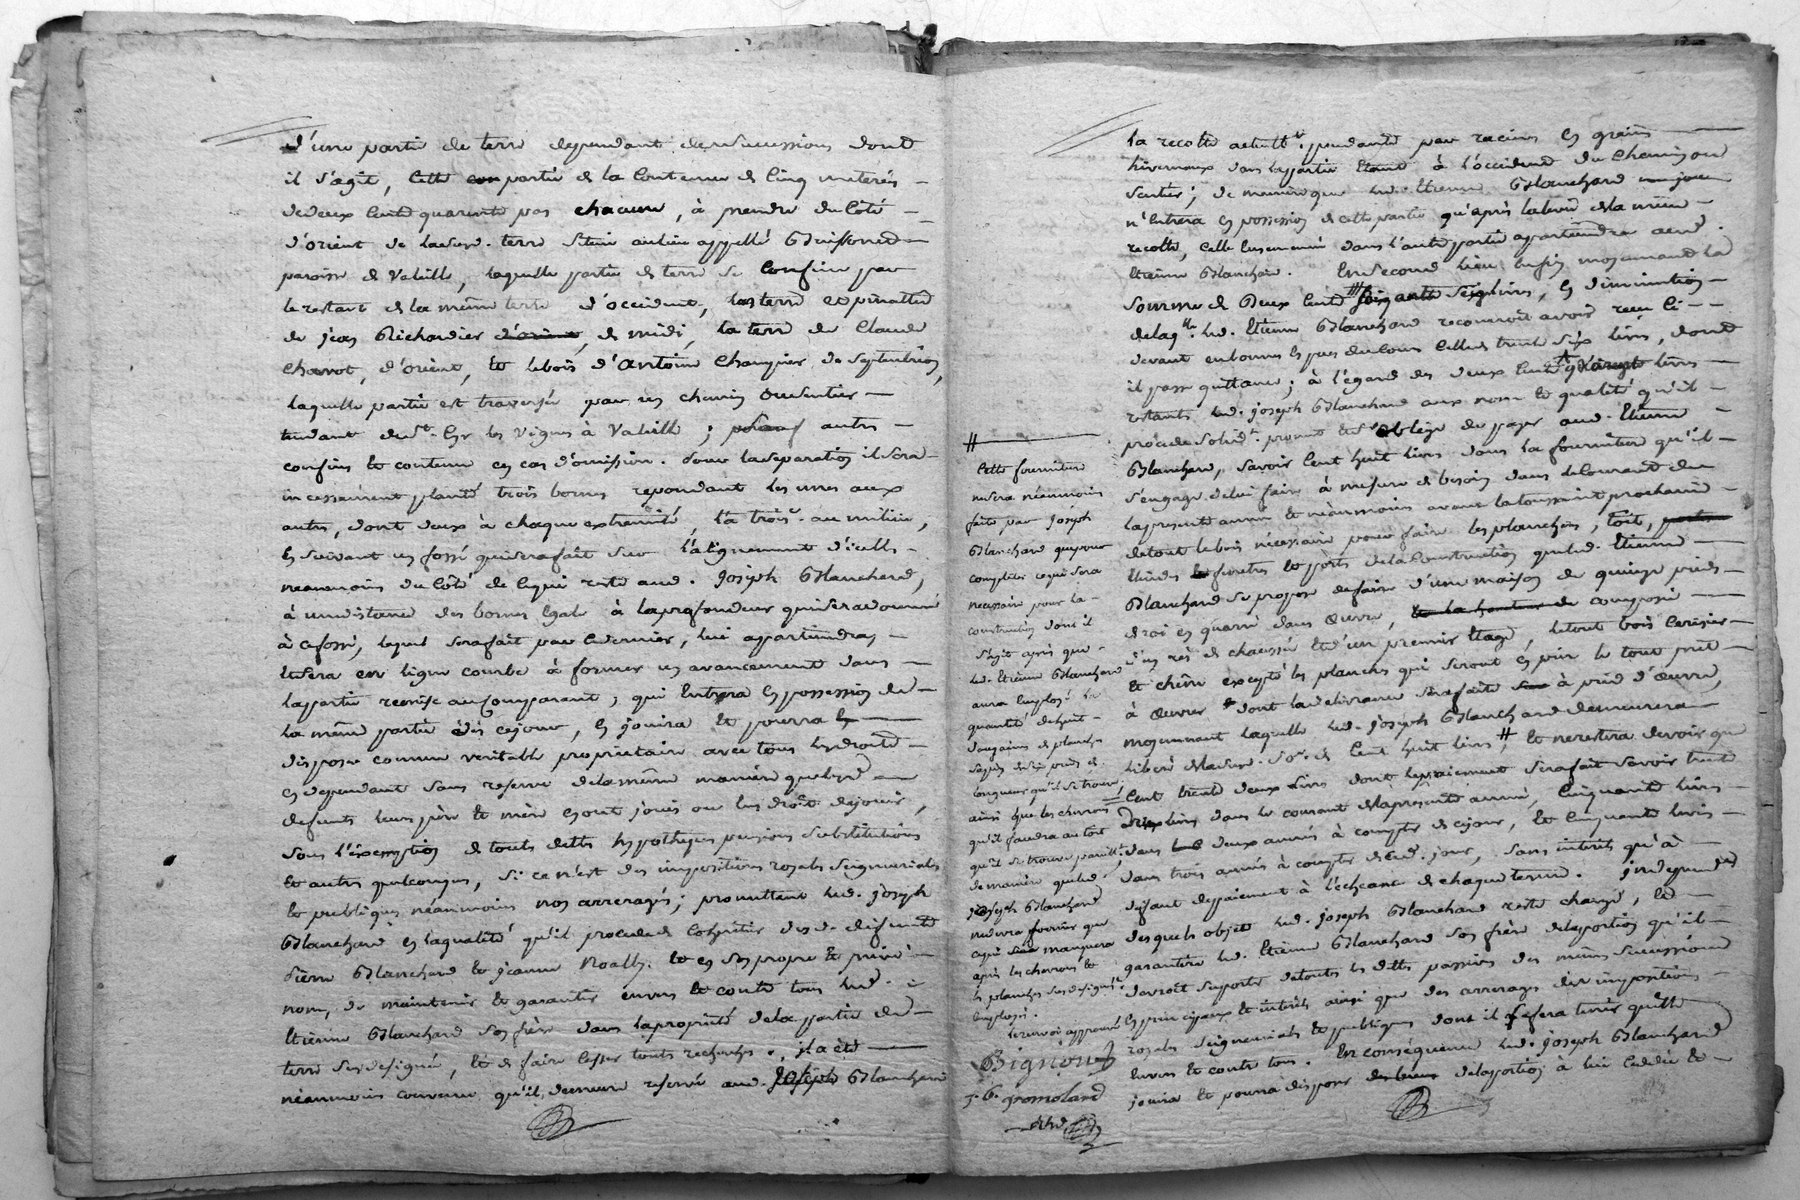 d'une partie de terre dependant des successions dont
il s'agit, cette partie de la contenue de cinq meterés
de deux cent quarente pas chacune, à prendre du côté
d'orient de laditte terre située au lieu appellé Buissonet
paroisse de Valeille, laquelle partie de terre se confine par
le restant de la même terre d'occident, les terre et pinattée
de jean Richardier de midi, la terre de Claude
Charrot, d'orient, et le bois d'antoine de septentrion,
laquelle partie est traversée par un chemin ou sentier
tendant de St Cyr les Vignes à Valeille ; autres
confins et contenue en cas d'omission. pour la separation il sera
incessament planté trois bornes repondant les unes aux
autres, dont deux à chaque extremité, la trois.e au milieu,
en suivant un fossé qui sera fait sur l'alignement d'icelles
neanmoins du côté de ce qui reste aud. Joseph Blanchard,
à une distance des bornes egale à la profondeur qui sera donnée
à ce fossé, lequel sera fait par ce dernier, lui appartiendra,
et sera en ligne courbe à former un avancement dans
la partie remise au comparant ; qui entrera en possession de
la même partie dès ce jour, en jouira et pourra en
disposer comme veritable proprietaire avec tous les droits
en dependant sans reserve de la même maniere que lesd.
defunts leurs père et mère en ont joui ou eu droit de jouir,
sous l'exemption de touts dettes hypotheques pensions substitutions
et autres quelconques, si ce n'est des impositions royales seigneuriales
et publiques, néanmoins nos arrerages ; promettant led. joseph
Blanchard en la qualité qu'il procede de cohéritier desd. defunts
Pierre Blanchard et jeanne Noally. et en son propre et privé
nom, de maintenir et garantir envers et contre tous led.
Etienne Blanchard son frère dans la proprieté de la partie de
terre sus designée, et de faire cesser touts recherches., il a été
néanmoins convenu qu'il demeure reservé aud. Joseph Blanchard
la recolte actuelle. pendante par racines en grains
hivernaux dans la partie étant à l'occident du chemin ou
sentier ; de maniere que led. Etienne Blanchard
n'entrera en possession de cette partie qu'après la levée de la même
recolte, celle ensemencée dans l'autre partie appartiendra aud.
Etienne Blanchard. En second lieu enfin moyennant la
somme de Deux cent livres, en diminution
delaq.lle led. Etienne Blanchard reconnoit avoir reçu ci
devant en bonnes especes du cours celle de trente six livres, dont
il passe quittance ; à l'égard des deux cent livres
restants led. joseph Blanchard aux nom et qualité qu'il
procede solid.t promet et s'oblige de payer aud. Etienne
Blanchard, savoir cent huit livres dans la fourniture qu'il
s'engage de lui faire à mesure de besoin dans le courant de
la presente année et neanmoins avant la toussaint prochaine
de tout le bois nécessaire pour faire les planchers, toit,
et des fenetres et portes de la construction que led. Etienne
Blanchard se propose de faire d'une maison de quinze pieds
de roi en quarré dans œuvre, composée
d'un rès de chaussée et d'un premier étage, le tout bois cerisier
et chêne excepté les planches qui seront en pin le tout pret
à œuvrer dont la delivrance sera faite à pied d'œuvre,
moyennant laquelle led. joseph Blanchard demeurera
liberé de lad. so.e de cent huit livres #, et ne restera devoir que
cent trente deux livres dont le paiement sera fait savoir trente
deux livres dans le courant de la presente année, cinquante livres
dans deux années à compter de ce jour, et cinquante livres
dans trois années à compter dud. jour, sans interêts qu'à
défaut de paiement à l'échéance de chaque terme. independ.t
desquels objets led. joseph Blanchard reste chargé, et
garantira led. Etienne Blanchard son frère de la portion qu'il
devroit suporter de toutes les dettes passives des mêmes successions
en principaux et interêts ainsi que des arrerages des impositions
royales seigneuriales et publiques dont il le fera tenir quitte
envers et contre tous. En conséquence led. joseph Blanchard
jouira et pourra disposer de la portion à lui cedée et
#
Cette fourniture
ne sera néanmoins
faite par Joseph
Blanchard que pour
completer ce qui sera
necessaire pour la
construction dont il
s'agit après que
led. Etienne Blanchard
aura employé la
quantité de huit
douzaines de planches
sapin de six pieds de
longueur qu'il se trouve
ainsi que les chevrons
qu'il faudra au toit
qu'il se trouve pareillt.
de maniere que led.
joseph Blanchard
ne devra fournir que
ce qui manquera
après les chevrons et
les planches sus designés
employés.
le renvoi approuvé
Bignon
J. B. gromoland